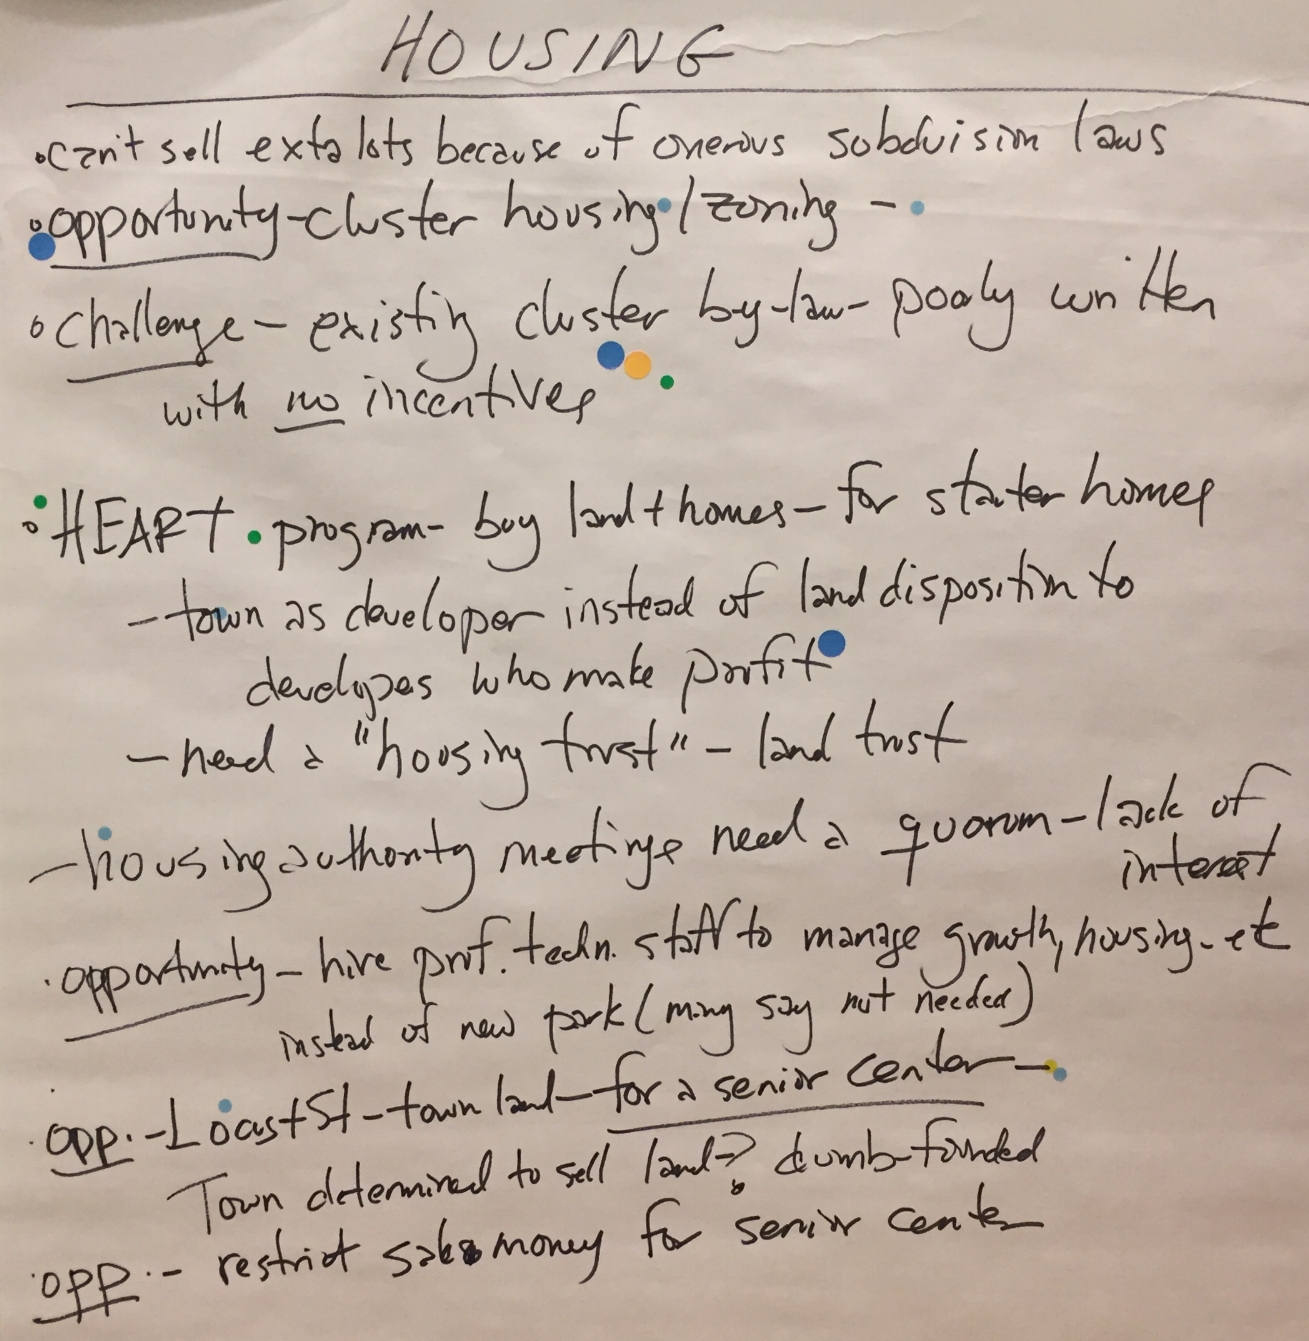 HOUSING
• can't sell exta lots because of onerous subdvision laws
• opportunity - cluster housing / zoning -
• challenge - existing cluster by-law - pooly written
with no incentives
• HEART program - buy land + homes - for starter homes
- town as developer instead of land disposition to
developes who make profit
- need a "housing trust" - land trust
- housing authority meetings need a quorum - lack of
interest
• opportunity - hire prof. techn. staff to manage growth, housing - etc
instead of new park (many say not needed)
• opp. - Locust St - town land - for a senior center -
Town determined to sell land? dumb-founded
• opp. - restrict sales money for senior center